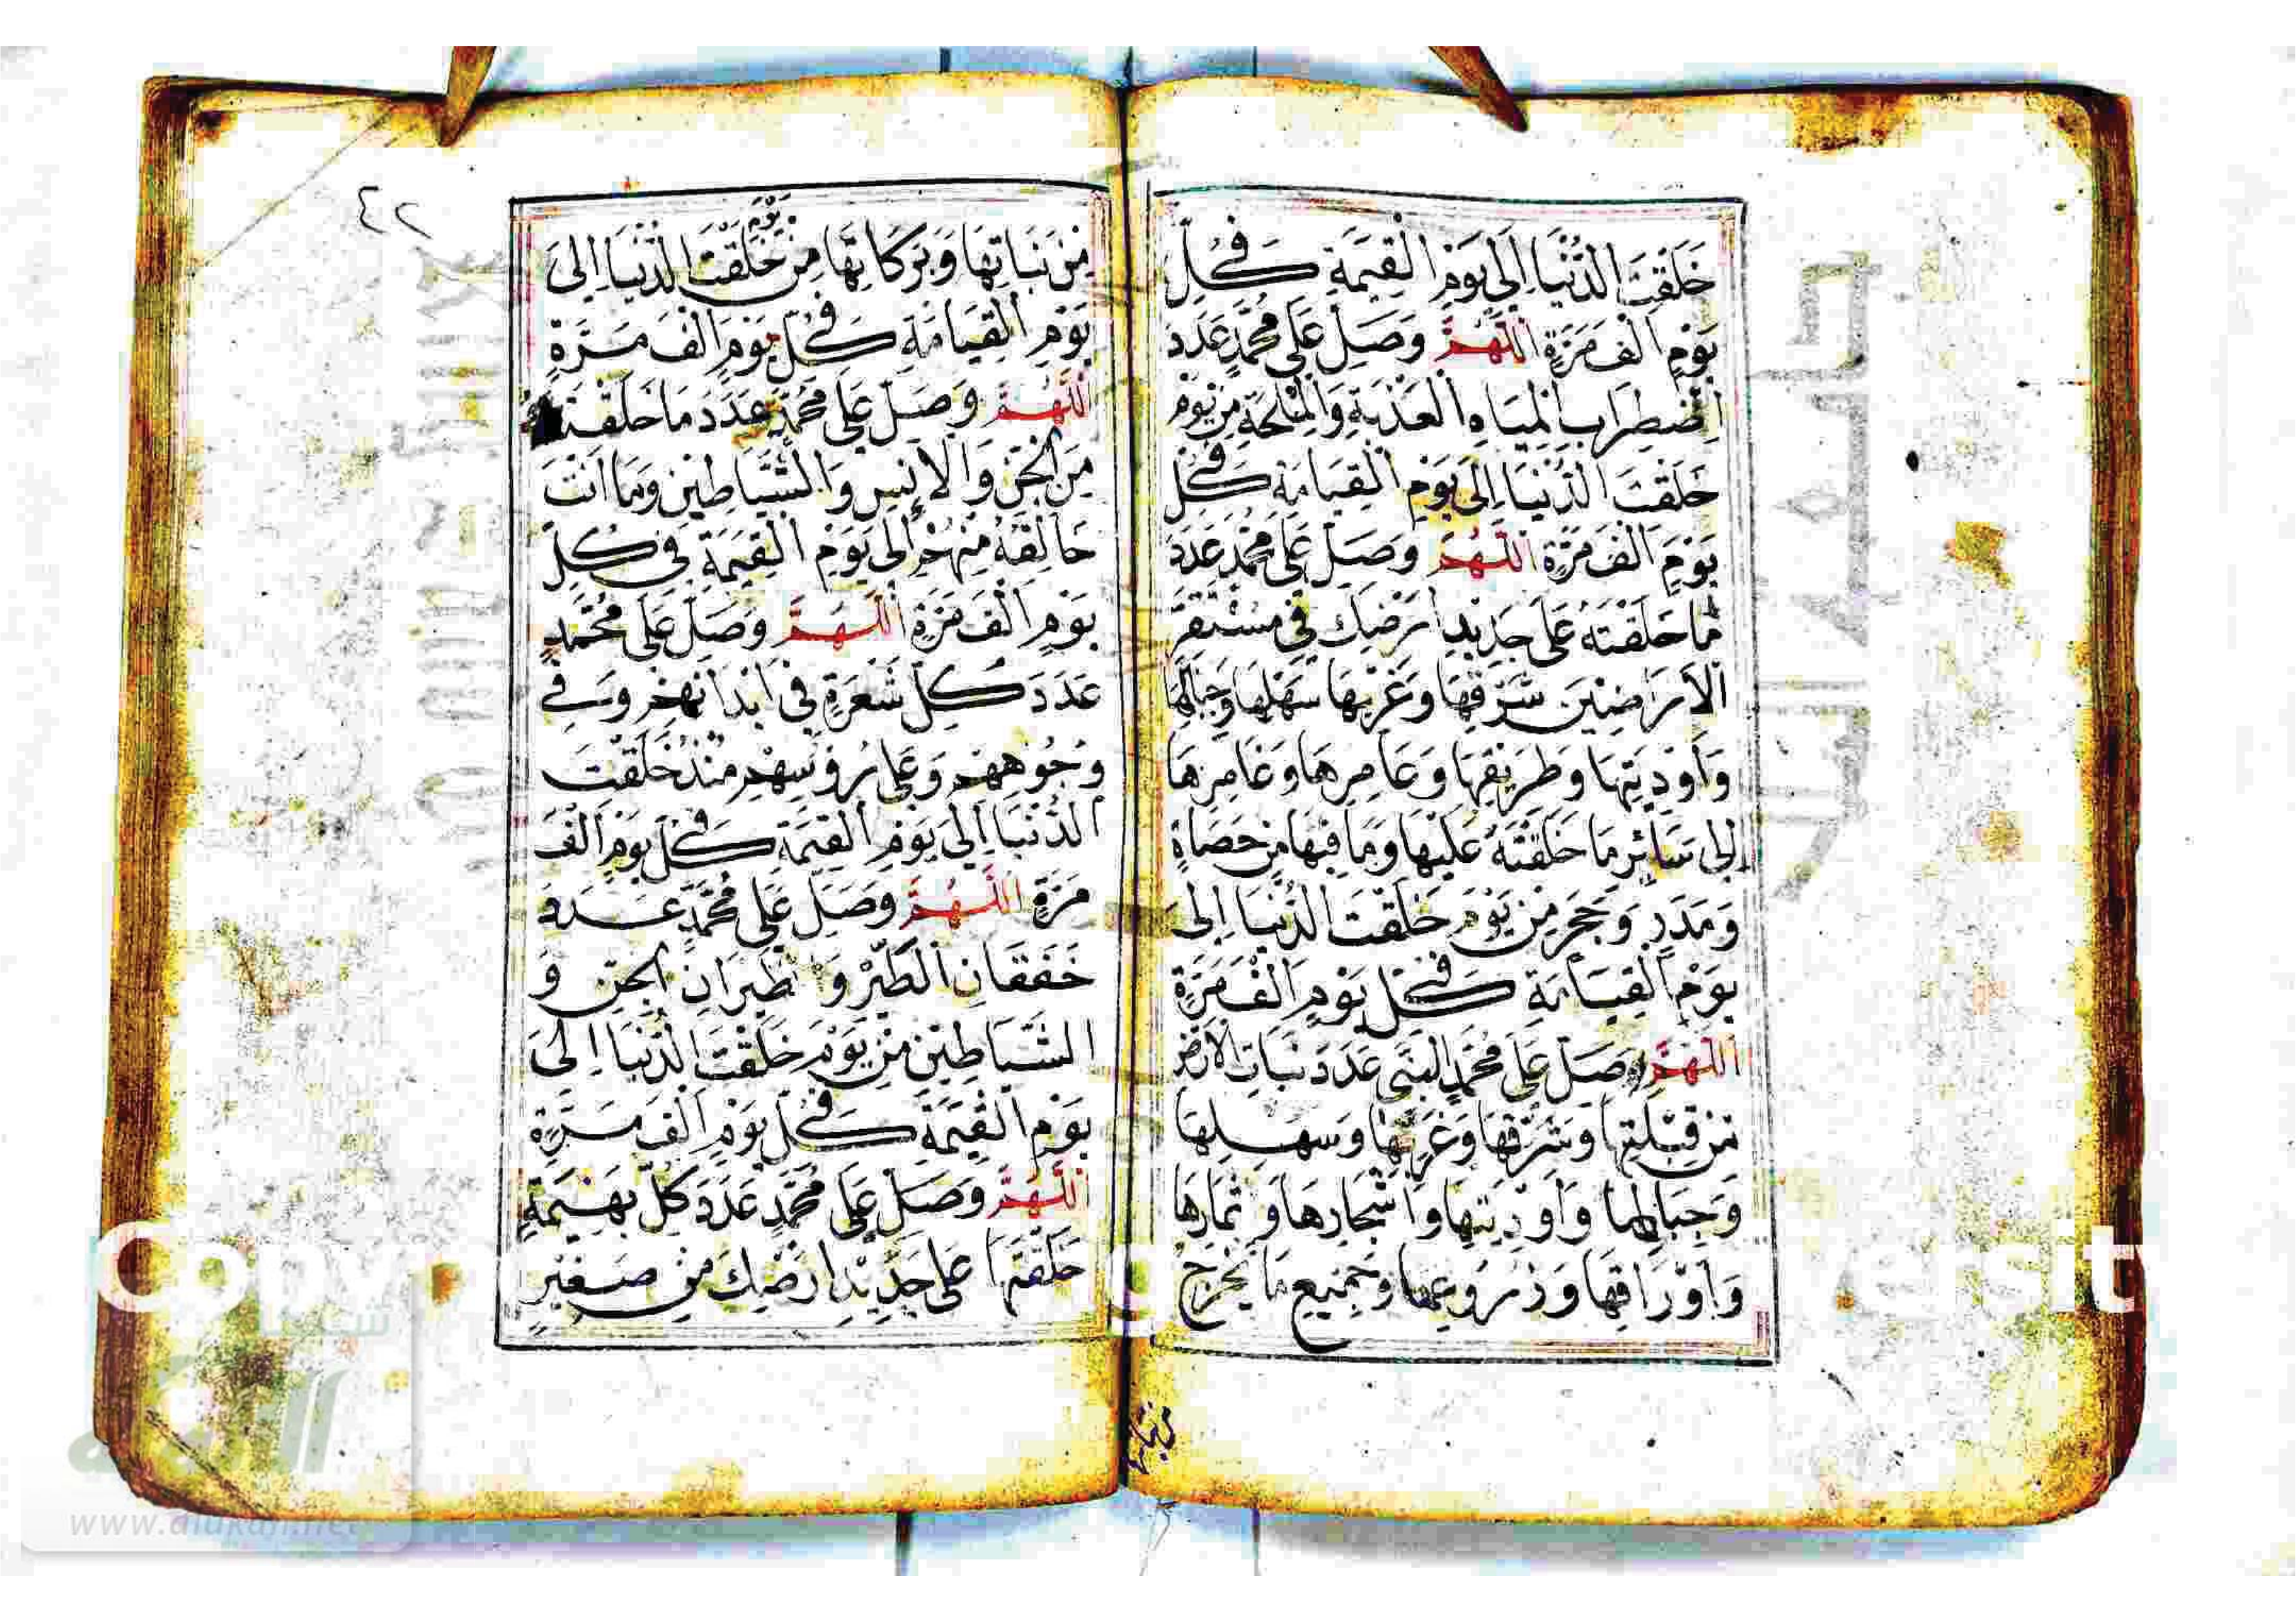 خَلَقْتَ الدُّنْيَا اِلَى يَوْمِ الْقِيمَةِ فِي كُلِّ
يَوْمٍ اَلْفَ مَرَّةٍ اَللّٰهُمَّ وَصَلِّ عَلَى مُحَمَّدٍ عَدَدَ
اضْطِرَابِ الْمِيَاهِ الْعَذْبَةِ وَالْمِلْحَةِ مِنْ يَوْمِ
خَلَقْتَ الدُّنْيَا اِلَى يَوْمِ الْقِيَامَةِ فِي كُلِّ
يَوْمٍ اَلْفَ مَرَّةٍ اَللّٰهُمَّ وَصَلِّ عَلَى مُحَمَّدٍ عَدَدَ
مَا خَلَقْتَهُ عَلَى جَدِيدِ اَرْضِكَ فِي مُسْتَقَرِّ
الْاَرَاضِينَ شَرْقِهَا وَغَرْبِهَا سَهْلِهَا وَجِبَالِهَا
وَاَوْدِيَتِهَا وَطَرِيقِهَا وَعَامِرِهَا وَغَامِرِهَا
اِلَى سَائِرِ مَا خَلَقْتَهُ عَلَيْهَا وَمَا فِيهَا مِنْ حَصَاةٍ
وَمَدَرٍ وَحَجَرٍ مِنْ يَوْمِ خَلَقْتَ الدُّنْيَا اِلَى
يَوْمِ الْقِيَامَةِ فِي كُلِّ يَوْمٍ اَلْفَ مَرَّةٍ
اَللّٰهُمَّ وَصَلِّ عَلَى مُحَمَّدٍ النَّبِيِّ عَدَدَ نَبَاتِ الْاَرْضِ
مِنْ قِبْلَتِهَا وَشَرْقِهَا وَغَرْبِهَا وَسَهْلِهَا
وَجِبَالِهَا وَاَوْدِيَتِهَا وَاَشْجَارِهَا وَثِمَارِهَا
وَاَوْرَاقِهَا وَزُرُوعِهَا وَجَمِيعِ مَا يَخْرُجُ
٤٢
مِنْ نَبَاتِهَا وَبَرَكَاتِهَا مِنْ يَوْمِ خَلَقْتَ الدُّنْيَا اِلَى
يَوْمِ الْقِيَامَةِ فِي كُلِّ يَوْمٍ اَلْفَ مَرَّةٍ
اَللّٰهُمَّ وَصَلِّ عَلَى مُحَمَّدٍ عَدَدَ مَا خَلَقْتَهُ
مِنَ الْجِنِّ وَالْاِنْسِ وَالشَّيَاطِينِ وَمَا اَنْتَ
خَالِقُهُ مِنْهُمْ اِلَى يَوْمِ الْقِيمَةِ فِي كُلِّ
يَوْمٍ اَلْفَ مَرَّةٍ اَللّٰهُمَّ وَصَلِّ عَلَى مُحَمَّدٍ
عَدَدَ كُلِّ شَعْرَةٍ فِي اَبْدَانِهِمْ وَفِي
وُجُوهِهِمْ وَعَلَى رُؤُسِهِمْ مُنْذُ خَلَقْتَ
الدُّنْيَا اِلَى يَوْمِ الْقِيمَةِ فِي كُلِّ يَوْمٍ اَلْفَ
مَرَّةٍ اَللّٰهُمَّ وَصَلِّ عَلَى مُحَمَّدٍ عَدَدَ
خَفَقَانِ الطَّيْرِ وَطَيَرَانِ الْجِنِّ وَ
الشَّيَاطِينِ مِنْ يَوْمِ خَلَقْتَ الدُّنْيَا اِلَى
يَوْمِ الْقِيمَةِ فِي كُلِّ يَوْمٍ اَلْفَ مَرَّةٍ
اَللّٰهُمَّ وَصَلِّ عَلَى مُحَمَّدٍ عَدَدَ كُلِّ بَهِيمَةٍ
خَلَقْتَهَا عَلَى جَدِيدِ اَرْضِكَ مِنْ صَغِيرٍ
www.alukah.net